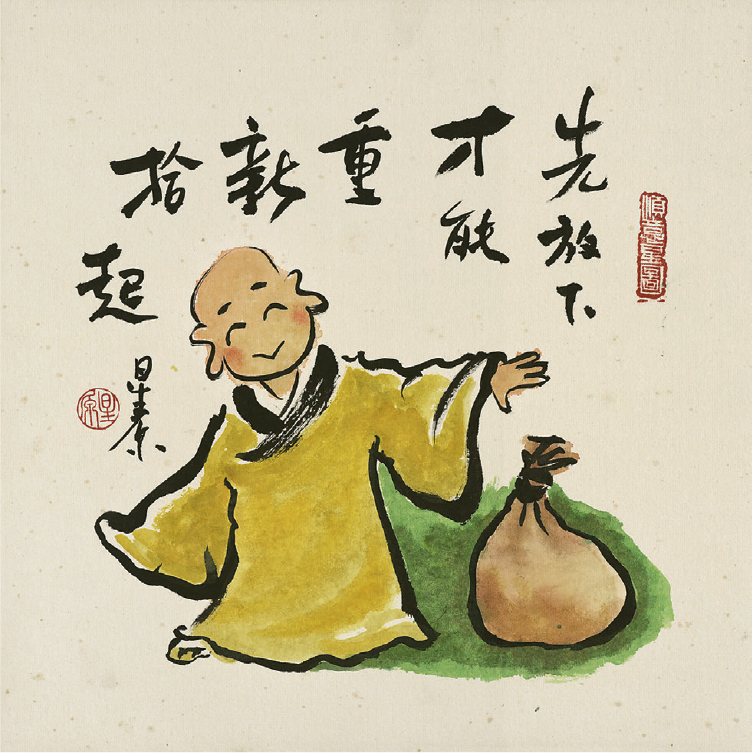 先放下
才能
重新拾
起
星